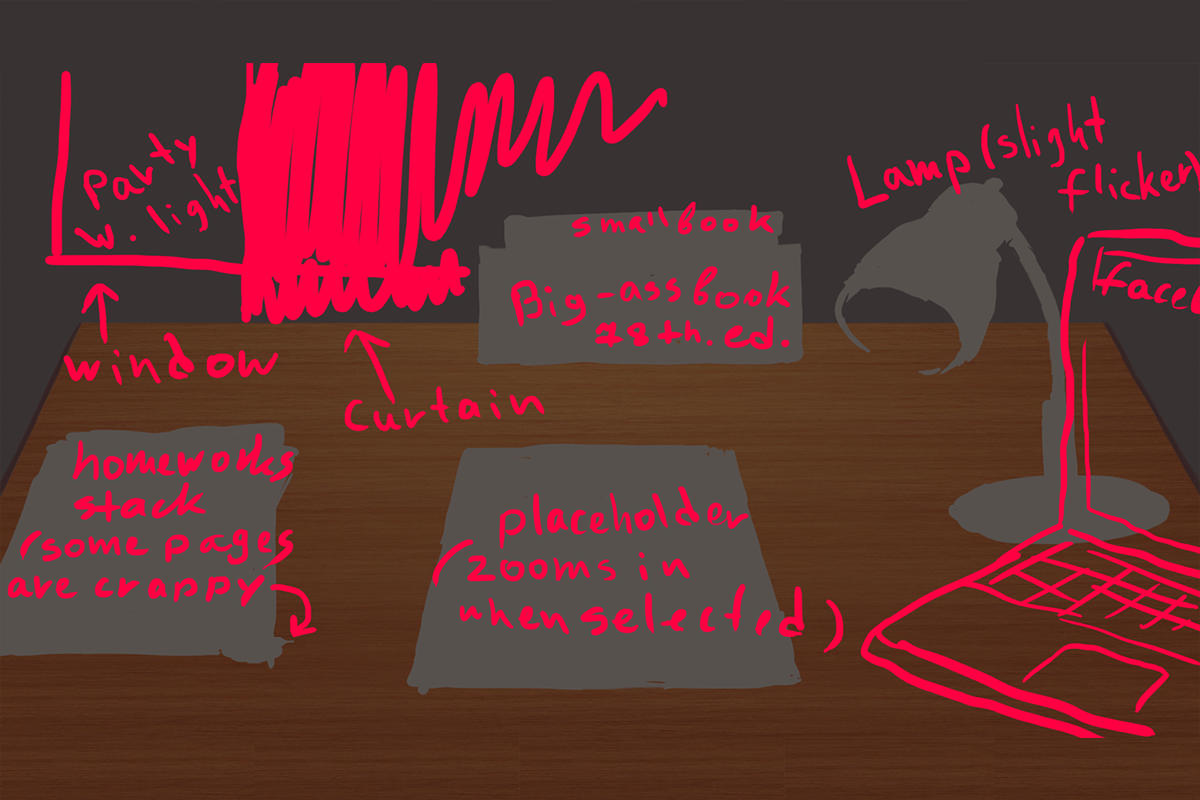 Party
w. light
window
curtain
small book
Big-ass book
78th. ed.
Lamp (slight
flicker)
homeworks
stack
(some pages
are crappy
placeholder
(zooms in
when selected)